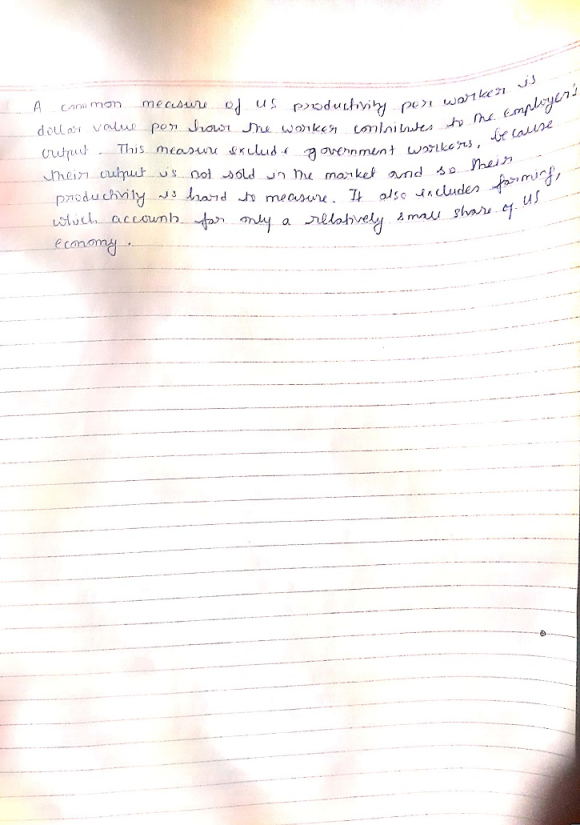 A common measure of US productivity per worker is
dollar value per hour the worker contributes to the employer's
output. This measure exclude government workers, because
their output is not sold in the market and so their
productivity is hard to measure. It also includes farming,
which accounts for only a relatively small share of US
economy.